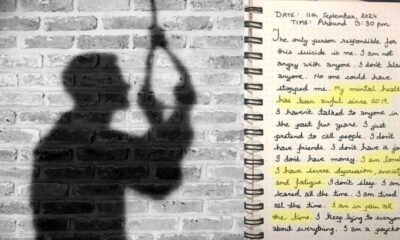 DATE: 11th September, 2024
TIME: Around 3:30 pm
The only person responsible for
this suicide is me. I am not
angry with anyone. I don't blame
anyone. No one could have
stopped me. My mental health
has been awful since 2019.
I haven't talked to anyone in
the past few years. I just
pretend to call people. I don't
have friends. I don't have a job.
I don't have money. I am lonely
I have severe depression, anxiety
and fatigue. I don't sleep. I am
scared all the time. I am tired
all the time. I am in pain all
the time. I keep lying to everyone
about everything. I am a psycho